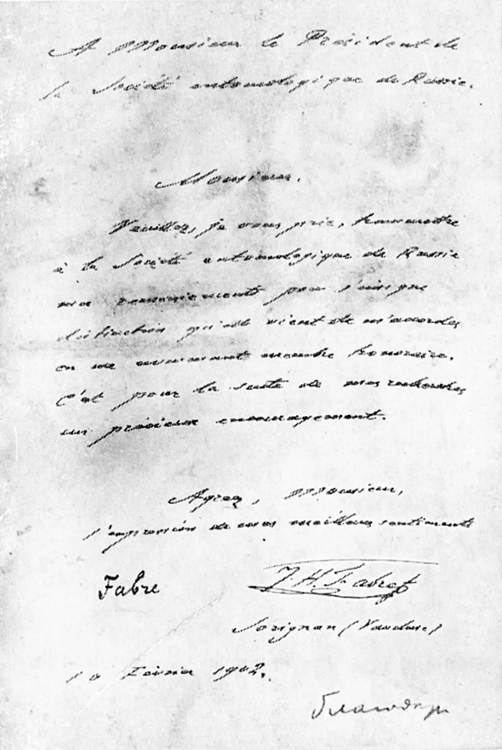 A Monsieur le Président de
la Société entomologique de Russie.
Monsieur,
Veuillez, je vous prie, transmettre
à la Société entomologique de Russie
mes remerciements pour l'insigne
distinction qu'elle vient de m'accorder
en me nommant membre honoraire.
C'est pour la suite de mes recherches
un précieux encouragement.
Agréez, Monsieur,
l'expression de mes meilleurs sentiments
Fabre
J. H. Fabre
Sérignan (Vaucluse)
Février 1902.